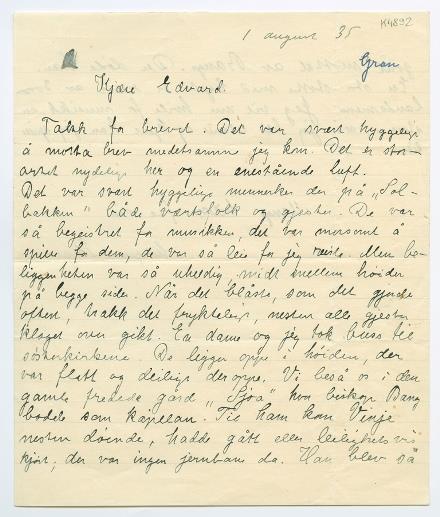 K4892
1 august 35
Gran
Kjære Edvard.
Takk for brevet. Det var svært hyggelig
å motta brev medetsamme jeg kom. Det er stor-
artet nydelig her og en enestående luft.
Det var svært hyggelige mennesker der på "Sol-
bakken" både vertsfolk og gjester. De var
så begeistret for musikken, det var morsomt å
spille for dem, de var så leie for jeg reiste. Men be-
liggenheten var så uheldig, midt mellem høider
på begge sider. Når det blåste, som det gjorde
oftest, trakk det trykkelig, nesten alle gjester
klaget over gikt. En dame og jeg tok buss til
søsterkirkene. De ligger oppe i høiden, der
var flatt og deilig deroppe. Vi beså os i den
gamle fredede gård "Sjoa" hvor biskop Bang
bodde som kapelan. Til ham kom Vinje
nesten døende, hadde gått eller leilighetsvis
kjørt, der var ingen jernbane da. Han blev så